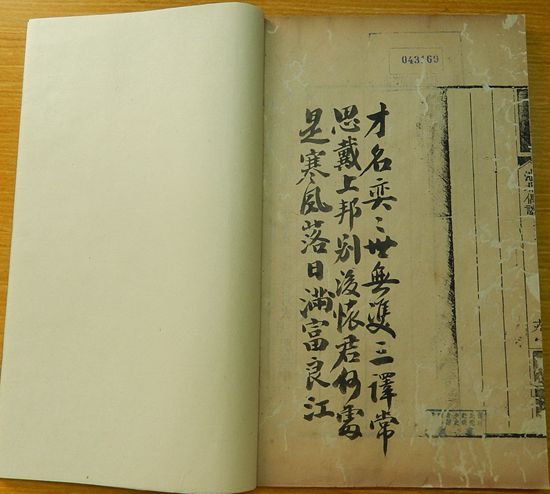 043169
才名奕〻世無雙三譯常
思戴上邦別後懷君何處
是寒風落日滿富良江